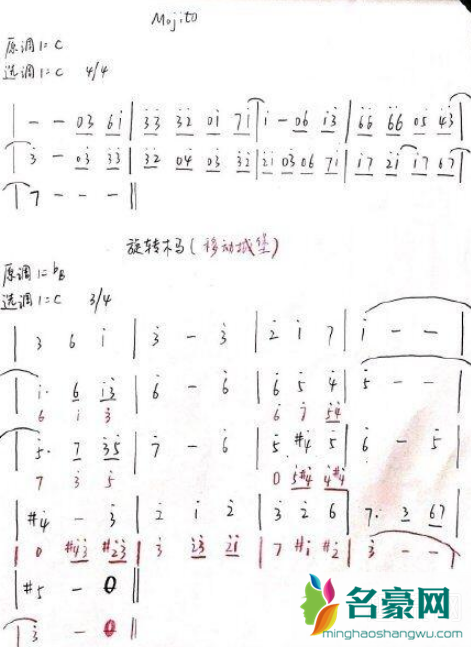 Mojito
原调1=C
选调1=C 4/4
| - - 03 6i | 33 32 01 7i | i - 06 i3 | 66 66 05 43 |
| 3 - 03 33 | 32 04 03 32 | 2i 03 06 7i | i7 2i i7 67 |
| 7 - - - ||
旋转木马(移动城堡)
原调1=bB
选调1=C 3/4
| 3 6 i | 3 - 3 | 2 i 7 | i - - |
| i· 6 i3 | 6 - 6 | 6 5 4 | 5 - - |
6 i 3 6 7 54
| 5· 7 35 | 7 - 6 | 5 #4 5 | 6 - 5 |
7 3 5 0 5#4 4#4
| #4 - 3 | 2 i 2 | 3 2 6 | 7· 3 67 |
| 0 #43 #23 | 3 23 2i | 7 #i #2 | 3 - - |
| #5 - 0 ||
| 3 - 0 ||
名豪网
minghaoshangwu.com